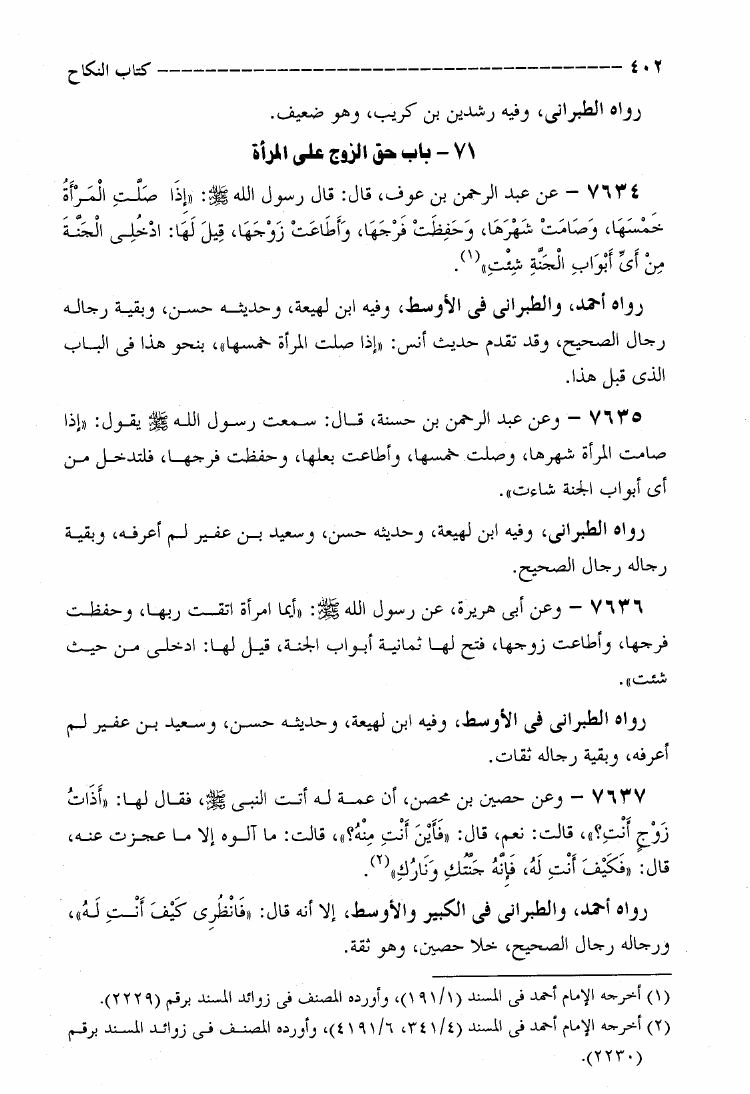 ٤٠٢ ـــــــــــــــــــــــــــــــــــــــــــــــــــــــــــ كتاب النكاح
رواه الطبرانى، وفيه رشدين بن كريب، وهو ضعيف.
٧١ – باب حق الزوج على المرأة
٧٦٣٤ – عن عبد الرحمن بن عوف، قال: قال رسول الله ﷺ: «إِذَا صَلَّتِ الْمَرْأَةُ
خَمْسَهَا، وَصَامَتْ شَهْرَهَا، وَحَفِظَتْ فَرْجَهَا، وَأَطَاعَتْ زَوْجَهَا، قِيلَ لَهَا: ادْخُلِى الْجَنَّةَ
مِنْ أَىِّ أَبْوَابِ الْجَنَّةِ شِئْتِ»(١).
رواه أحمد، والطبرانى فى الأوسط، وفيه ابن لهيعة، وحديثه حسن، وبقية رجاله
رجال الصحيح، وقد تقدم حديث أنس: «إذا صلت المرأة خمسها»، بنحو هذا فى الباب
الذى قبل هذا.
٧٦٣٥ – وعن عبد الرحمن بن حسنة، قال: سمعت رسول الله ﷺ يقول: «إذا
صامت المرأة شهرها، وصلت خمسها، وأطاعت بعلها، وحفظت فرجها، فلتدخل من
أى أبواب الجنة شاءت».
رواه الطبرانى، وفيه ابن لهيعة، وحديثه حسن، وسعيد بن عفير لم أعرفه، وبقية
رجاله رجال الصحيح.
٧٦٣٦ – وعن أبى هريرة، عن رسول الله ﷺ: «أيما امرأة اتقت ربها، وحفظت
فرجها، وأطاعت زوجها، فتح لها ثمانية أبواب الجنة، قيل لها: ادخلى من حيث
شئت».
رواه الطبرانى فى الأوسط، وفيه ابن لهيعة، وحديثه حسن، وسعيد بن عفير لم
أعرفه، وبقية رجاله ثقات.
٧٦٣٧ – وعن حصين بن محصن، أن عمة له أتت النبى ﷺ، فقال لها: «أَذَاتُ
زَوْجٍ أَنْتِ؟»، قالت: نعم، قال: «فَأَيْنَ أَنْتِ مِنْهُ؟»، قالت: ما آلوه إلا ما عجزت عنه،
قال: «فَكَيْفَ أَنْتِ لَهُ، فَإِنَّهُ جَنَّتُكِ وَنَارُكِ»(٢).
رواه أحمد، والطبرانى فى الكبير والأوسط، إلا أنه قال: «فَانْظُرِى كَيْفَ أَنْتِ لَهُ»،
ورجاله رجال الصحيح، خلا حصين، وهو ثقة.
(١) أخرجه الإمام أحمد فى المسند (١٩١/١)، وأورده المصنف فى زوائد المسند برقم (٢٢٢٩).
(٢) أخرجه الإمام أحمد فى المسند (٣٤١/٤، ٤١٩١/٦)، وأورده المصنف فى زوائد المسند برقم
(٢٢٣٠).